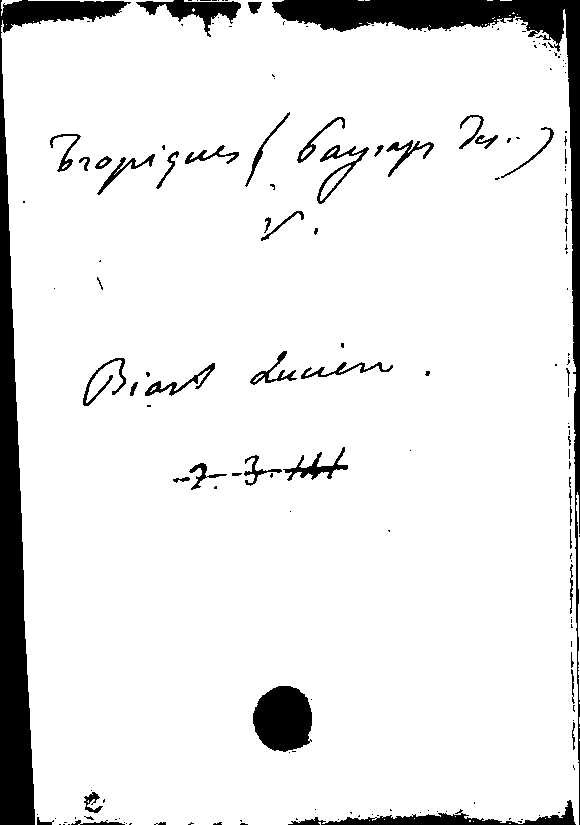 Tropiques (Paysages des..)
V.
Biart Lucien.